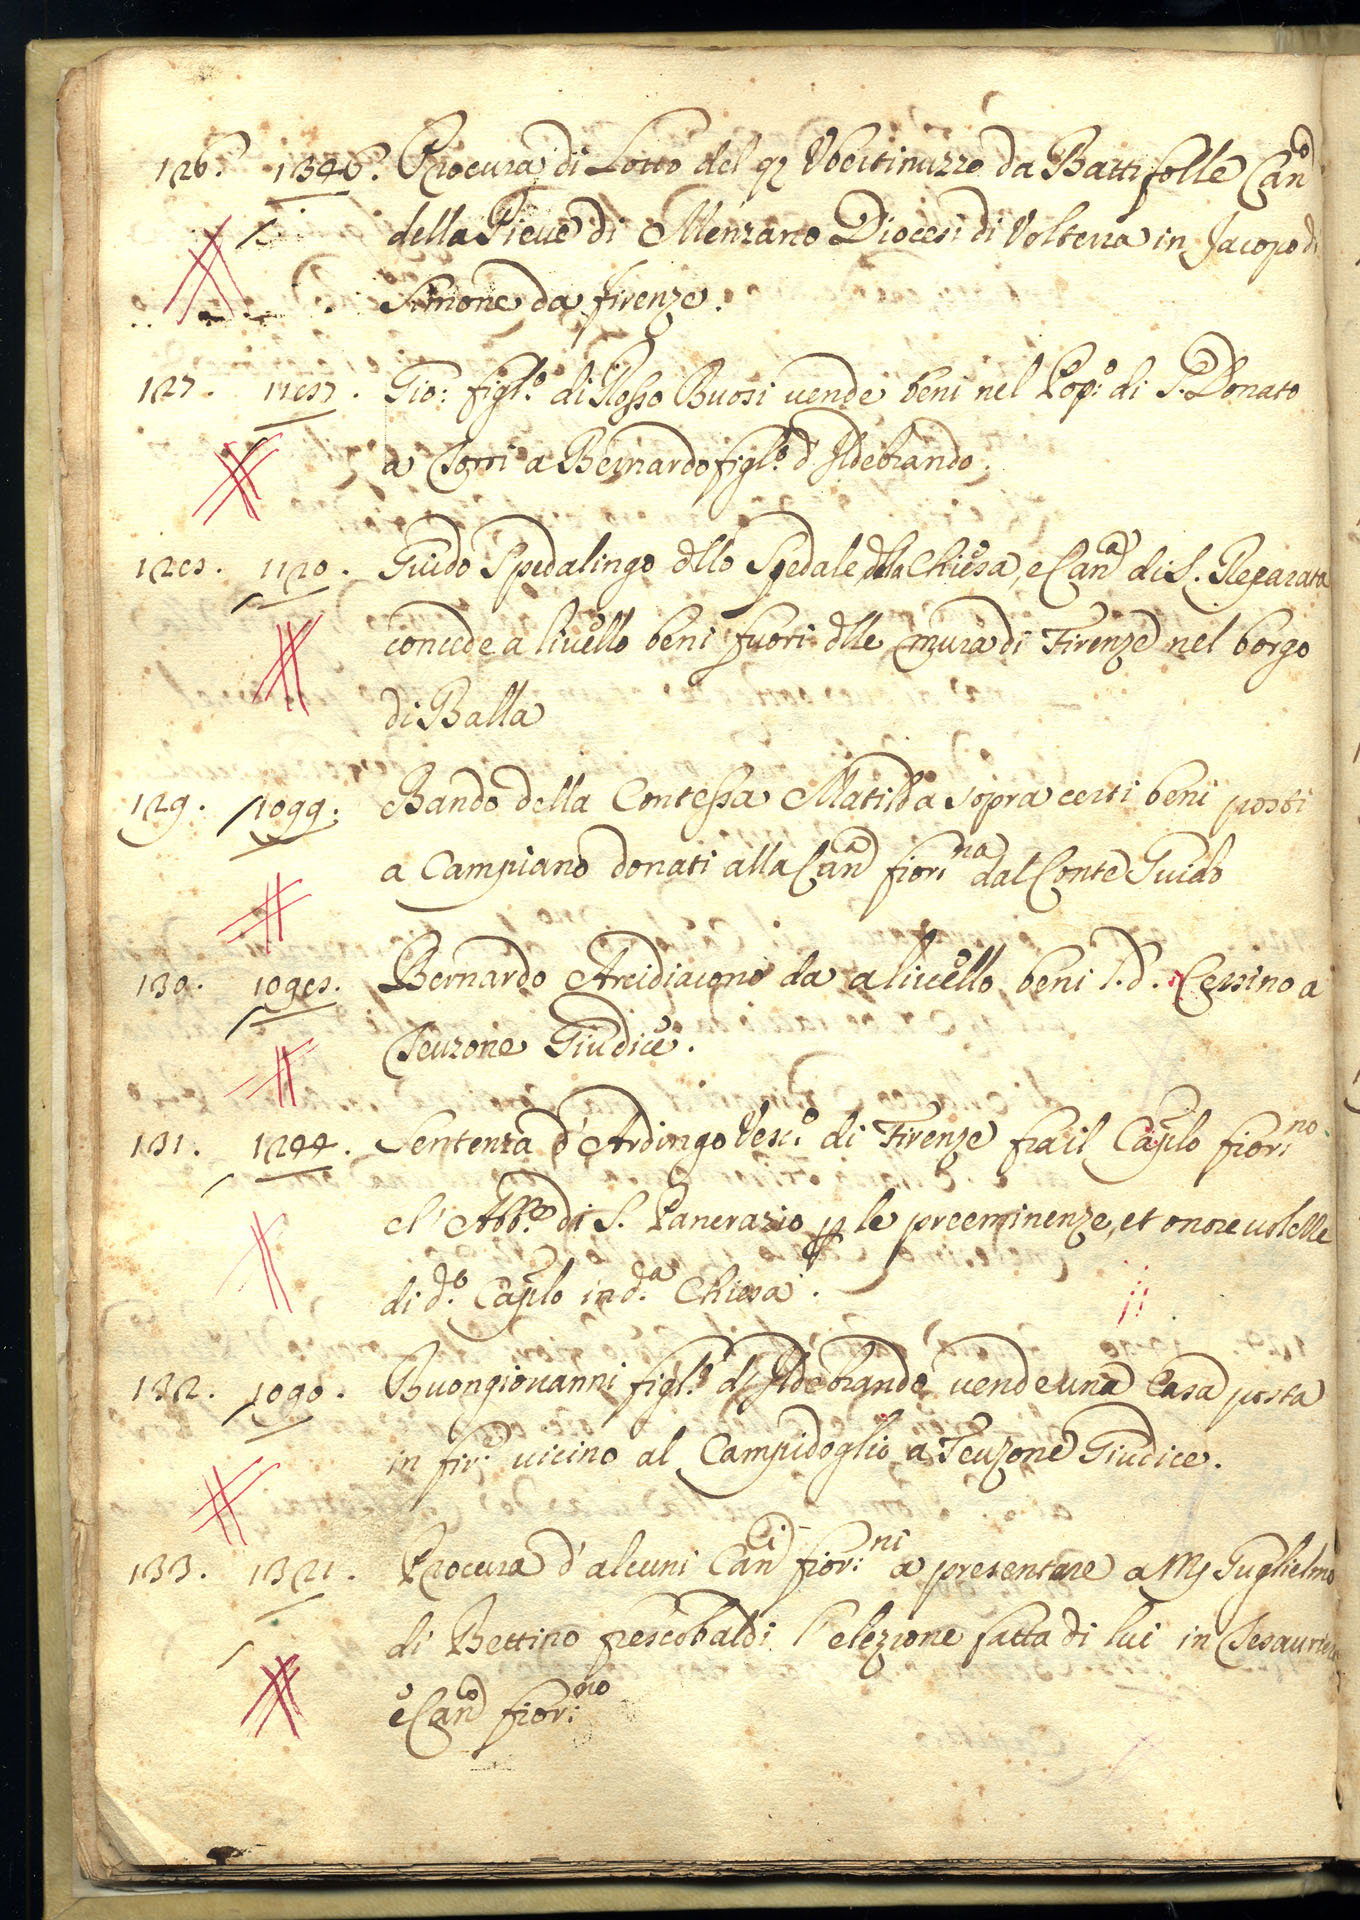 126. 1346. Procura di Lotto del q Ubertinuzzo da Battifolle Can.o
della Pieve di Menzano Diocesi di Volterra in Jacopo di
Simone da firenze.
127. Gio: figl.o di Rosso Buosi vende beni nel Pop.o di S. Donato
a Torri a Bernardo figl.o d'Ildebrando.
128. 1120. Guido Spedalingo dllo Spedale dlla Chiesa, e Can.a di S. Reparata
concede a livello beni fuori dlle mura di Firenze nel borgo
di Balla
129. 1099. Bando della Contessa Matilda sopra certi beni posti
a Campiano donati alla Can.a fior.na dal Conte Guido
130. 1098. Bernardo Arcidiacono da a livello beni l.d. Cersino a
Teuzone Giudice.
131. 1244. Sentenza d'Ardingo Vesc.o di Firenze fra il Caplo fior.no
e l'Abb.e di S. Pancrazio p le preeminenze, et onorevolelle
di d.o Caplo in d.a Chiesa.
132. 1090. Buongiovanni figl.o di Ildebrando vende una Casa posta
in fir: vicino al Campidoglio a Teuzone Giudice.
133. 1321. Procura d'alcuni Can.i fior.ni a presentare a Ms Guglielmo
di Bettino frescobaldi l'elezione fatta di lui in Tesauriere
e Can.o fior.no